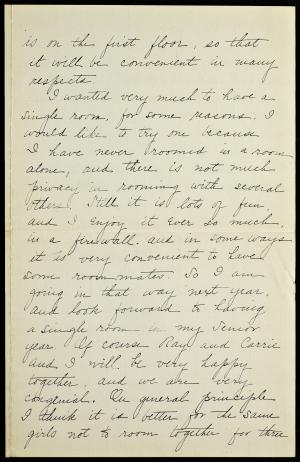 is on the first floor, so that
it will be convenient in many
respects.
I wanted very much to have a
single room, for some reasons. I
would like to try one because
I have never roomed in a room
alone, and there is not much
privacy in rooming with several
others. Still it is lots of fun
and I enjoy it ever so much,
in a firewall, and in some ways
it is very convenient to have
some room mates. So I am
going in that way next year,
and look forward to having
a single room in my Senior
year. Of course Ray and Carrie
and I will be very happy
together, and we are very
congenial. On general principle
I think it is better for the same
girls not to room together for three